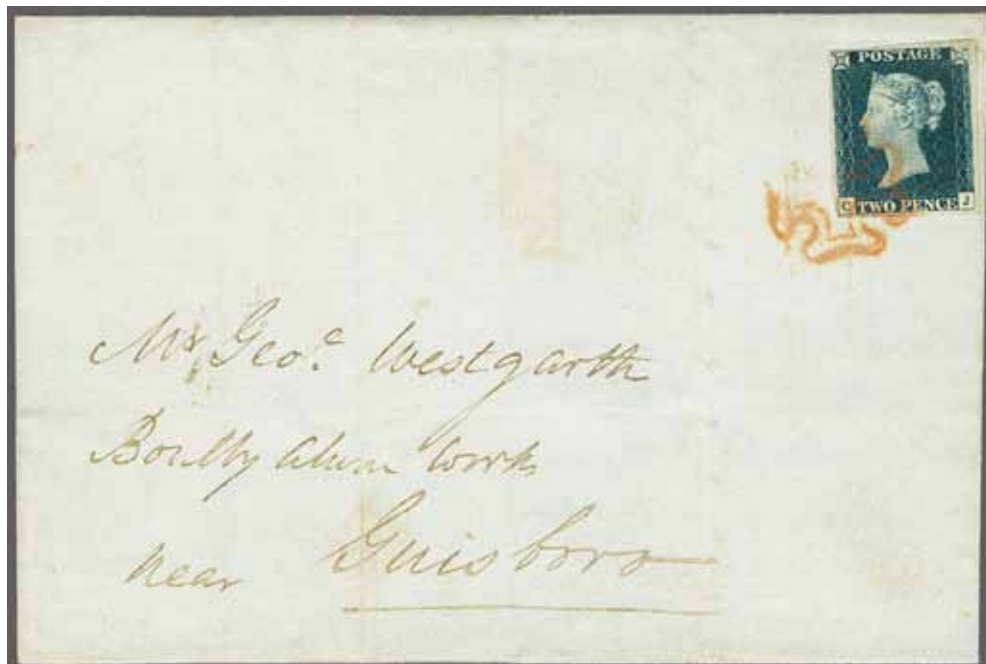 POSTAGE
C TWO PENCE J
Mr Geo.e Westgarth
Boulby Alum Works
near Guisboro